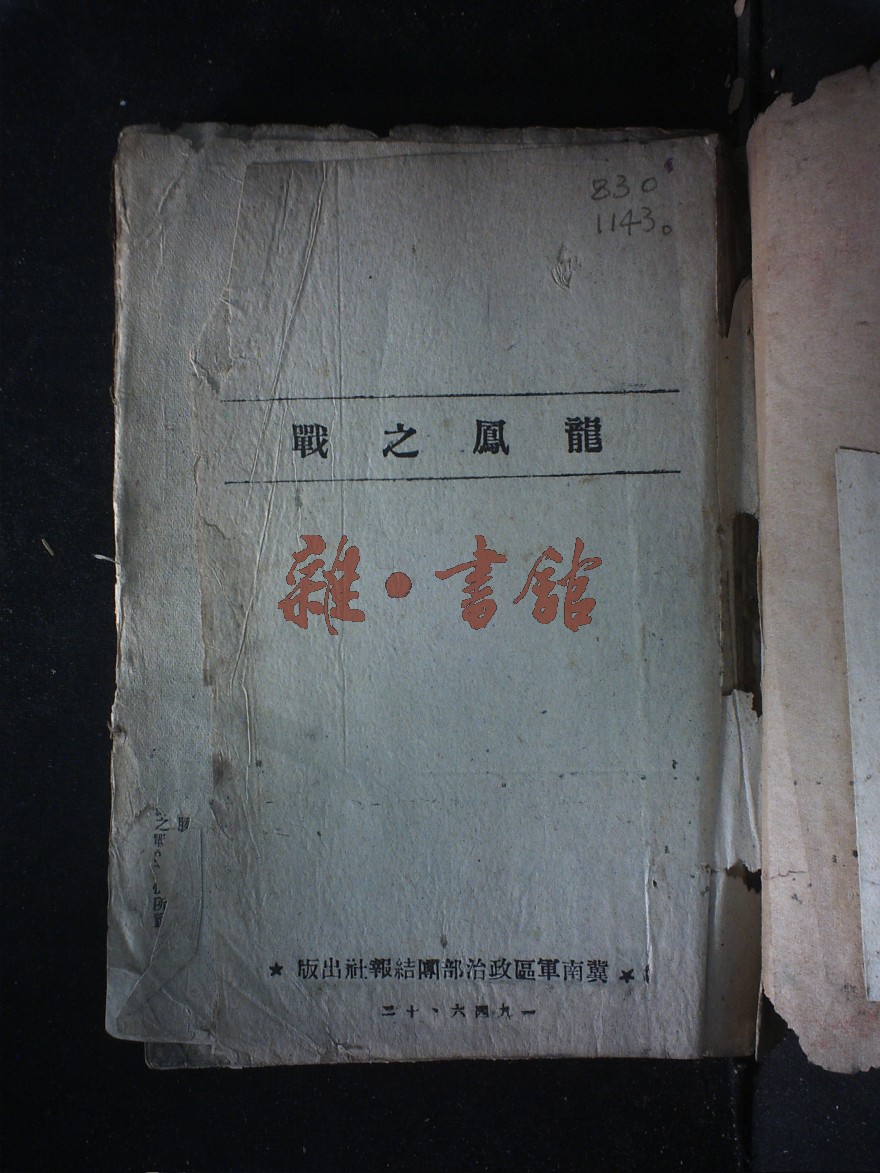 830
1143。
龍鳳之戰
雜·書館
★冀南軍區政治部團結報社出版★
一九四六、十二